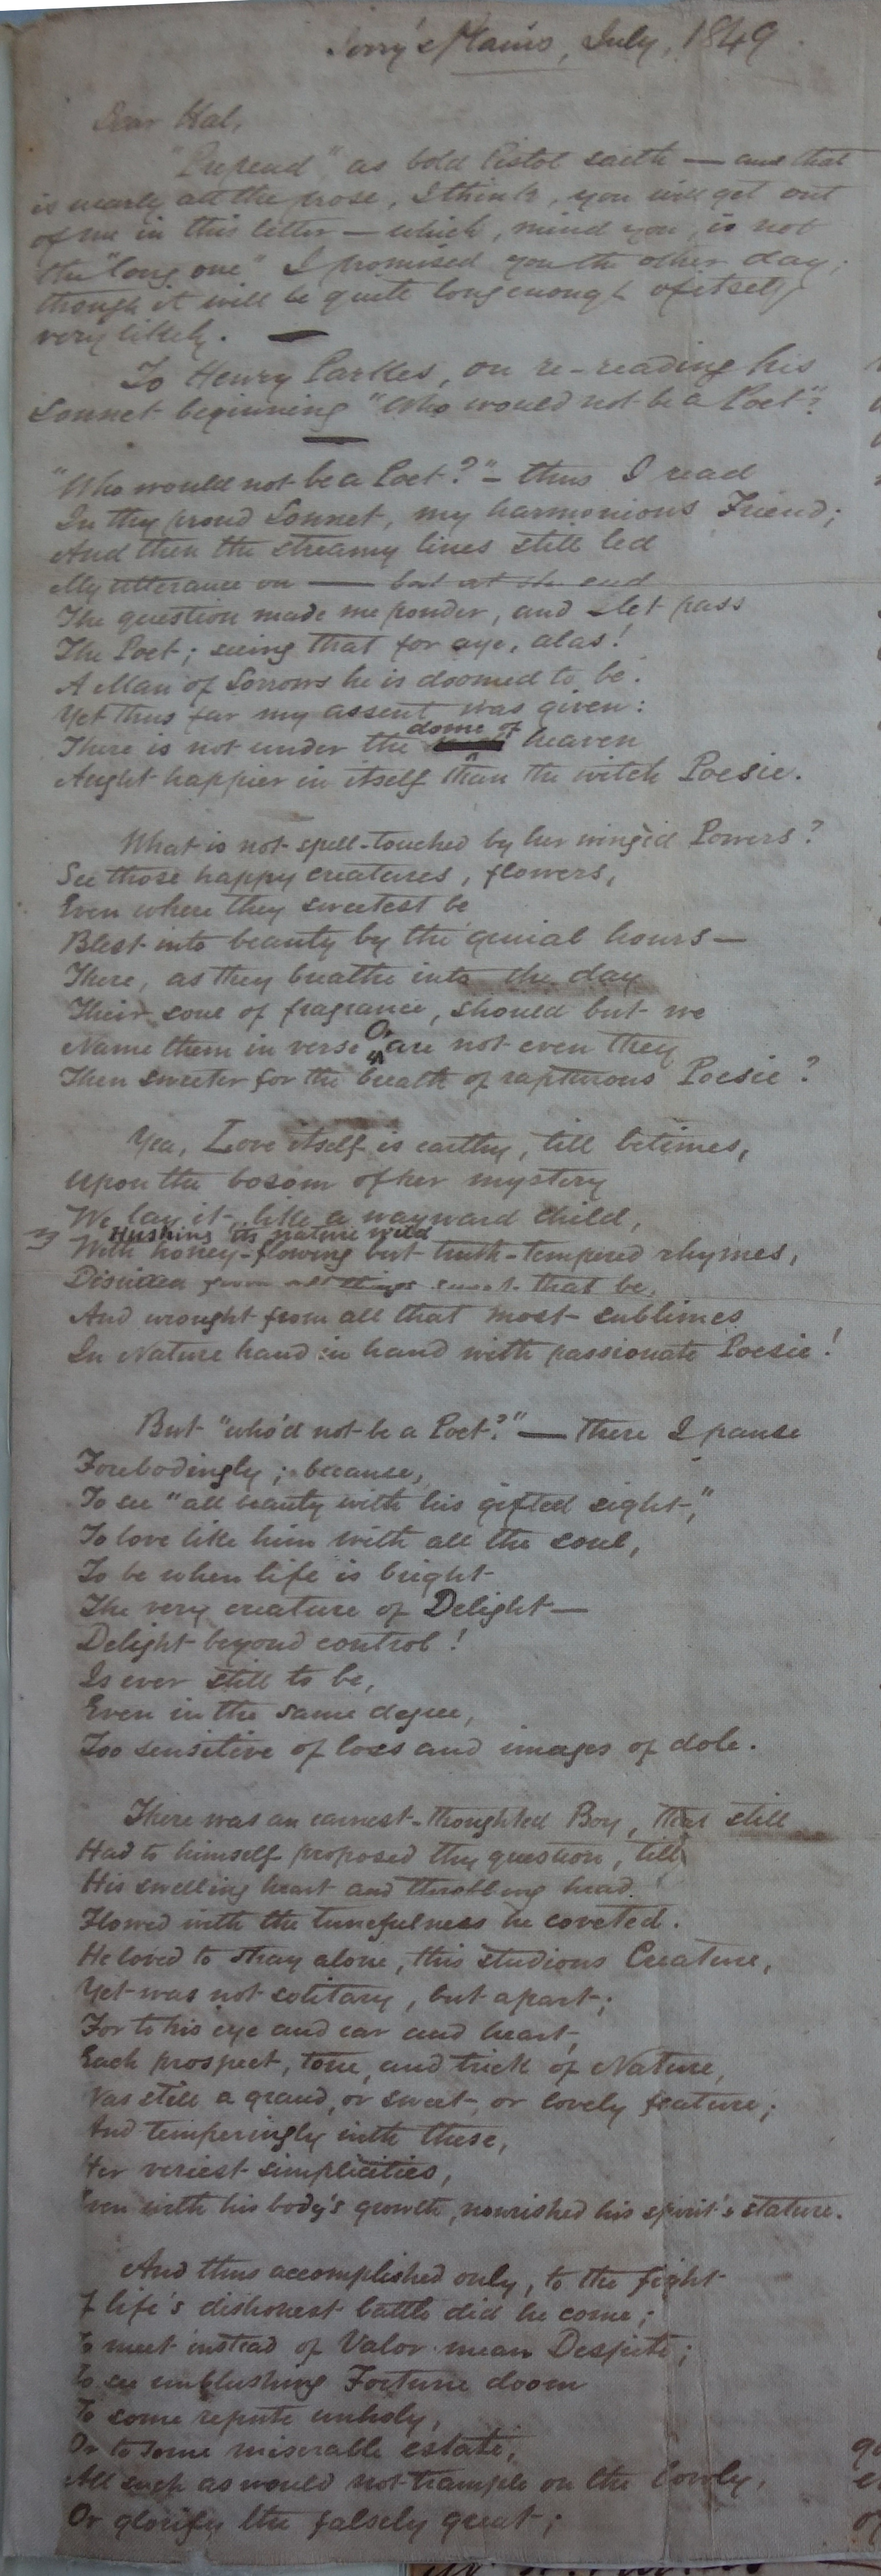 Jerry's Plains, July, 1849.
Dear Hal,
"Perpend" as bold Pistol saith — and that
is nearly all the prose, I think, you will get out
of me in this letter — which, mind you, is not
the "long one" I promised you th other day;
though it will be quite long enough of itself
very likely. —
To Henry Parkes, on re-reading his
Sonnet beginning "Who would not be a Poet"?
"Who would not be a Poet?" — thus I read
In thy proud Sonnet, my harmonious Friend;
And then the streamy lines still led
My utterance on — but at the end
The question made me ponder, and let pass
The Poet; seeing that for aye, alas!
A Man of Sorrows he is doomed to be.
Yet thus far my assent was given:
dome of
There is not under the heaven
Aught happier in itself than the witch Poesie.
What is not spell-touched by her wingèd Powers?
See those happy creatures, flowers,
Even where they sweetest be
Blest into beauty by the genial hours—
There, as they breathe into the day
Their soul of fragrance, should but we
Name them in verse O, are not even they
Then sweeter for the breath of rapturous Poesie?
Yea, Love itself is earthy, till betimes,
Upon the bosom of her mystery
We lay it like a wayward child,
Hushing its nature wild
With honey-flowing but truth-tempered rhymes,
from all things sweet that be,
And wrought from all that most sublimes
In Nature hand in hand with passionate Poesie!
But "who'd not be a Poet?" — There I pause
Forebodingly; because,
To see "all beauty with his gifted sight,"
To love like him with all the soul,
To be when life is bright
The very creature of Delight—
Delight beyond control!
Is ever still to be,
Even in the same degree,
Too sensitive of loss and images of dole.
There was an earnest-thoughted Boy, that still
Had to himself proposed thy question, till
His swelling heart and throbbing head
Flowed with the tunefulness he coveted.
He loved to stray alone, this studious Creature,
Yet was not solitary, but apart;
For to his eye and ear and heart,
Each prospect, tone, and trick of Nature,
Was still a grand, or sweet, or lovely feature;
And temperingly with these,
Her veriest simplicities,
Even with his body's growth, nourished his spirit's stature.
And thus accomplished only, to the fight
Of life's dishonest battle did he come;
To meet instead of Valor mean Despite;
To see unblushing Fortune doom
To some repute unholy,
Or to some miserable estate,
All such as would not trample on the lowly,
Or glorify the falsely great;